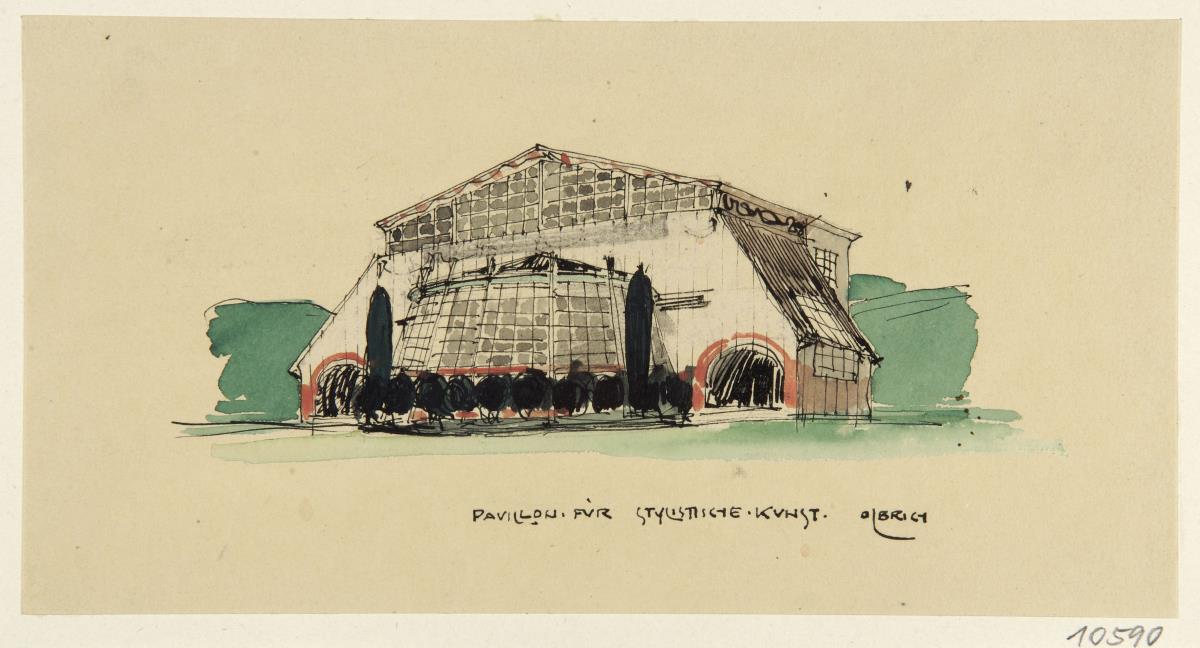 PAVILLON · FÜR STYLISTISCHE · KUNST. OLBRICH
10590